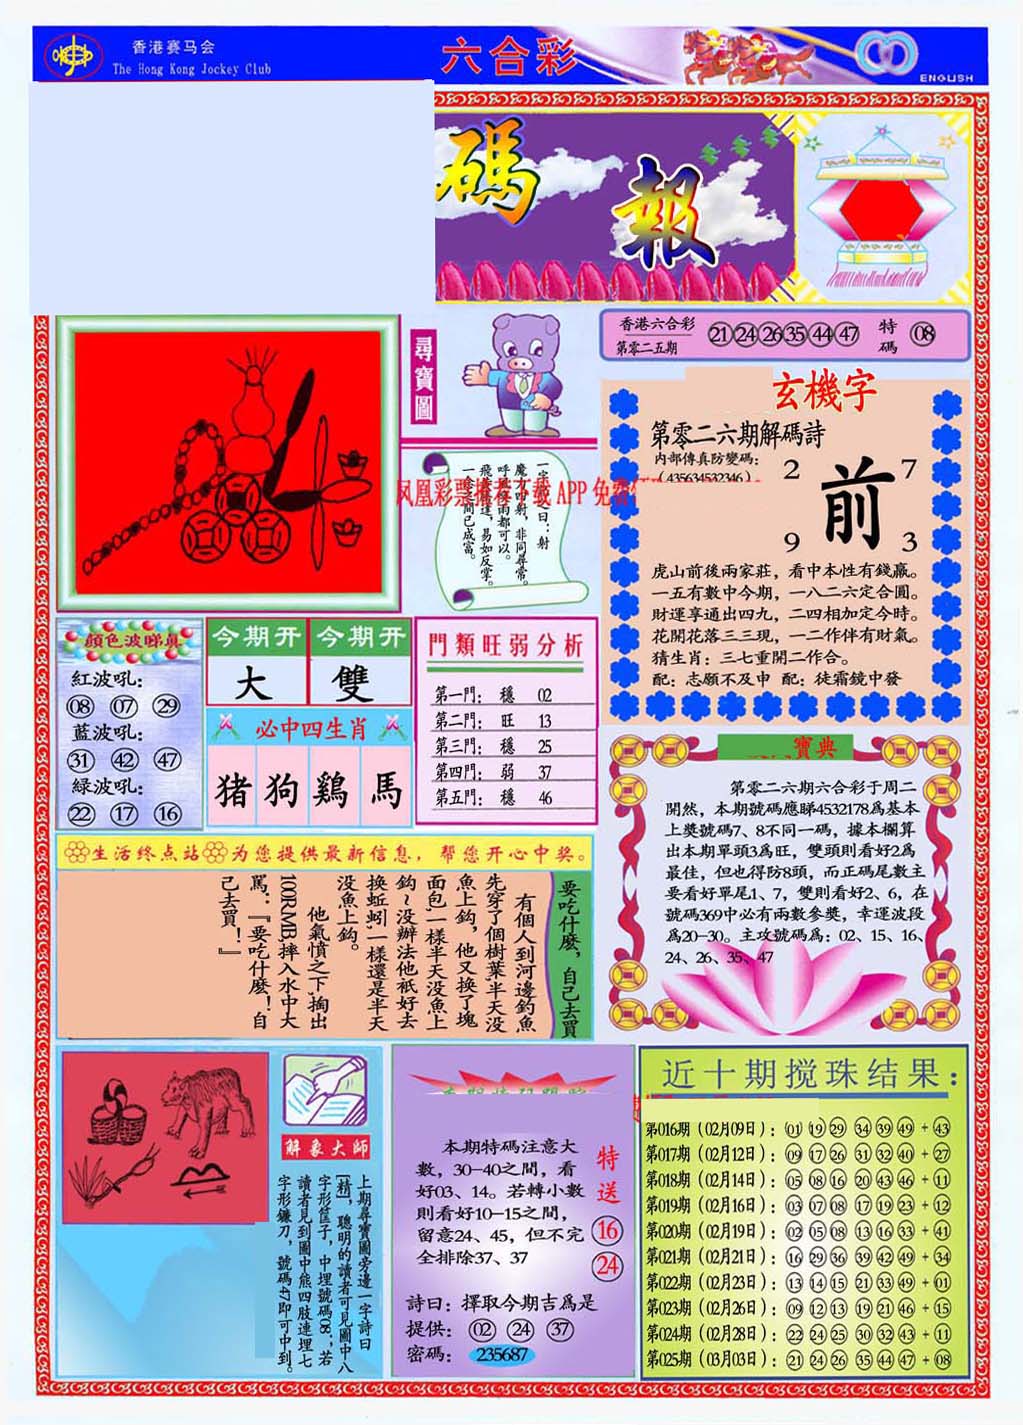 香港赛马会
The Hong Kong Jockey Club
六合彩
ENGLISH
碼報
尋寶圖
香港六合彩
第零二五期
21 24 26 35 44 47
特碼
08
玄機字
第零二六期解碼詩
内部傳真防變碼:
(435634532346)
2 7
前
9 3
虎山前後兩家莊,看中本性有錢贏。
一五有數中今期,一八二六定合圓。
財運享通出四九,二四相加定今時。
花開花落三三現,一二作伴有財氣。
猜生肖:三七重開二作合。
配:志願不及申 配:徒霜鏡中發
凤凰彩票
APP 免费
顏色波睇真
紅波吼:
08 07 29
藍波吼:
31 42 47
緑波吼:
22 17 16
今期开 今期开
大 雙
必中四生肖
猪 狗 鷄 馬
門類旺弱分析
第一門: 穩 02
第二門: 旺 13
第三門: 穩 25
第四門: 弱 37
第五門: 穩 46
寶典
第零二六期六合彩于周二
開然,本期號碼應睇4532178爲基本
上獎號碼7、8不同一碼,據本欄算
出本期單頭3爲旺,雙頭則看好2爲
最佳,但也得防8頭,而正碼尾數主
要看好單尾1、7,雙則看好2、6,在
號碼369中必有兩數參獎,幸運波段
爲20-30。主攻號碼爲:02、15、16、
24、26、35、47
生活终点站 为您提供最新信息,帮您开心中奖。
要吃什麽,自己去買
有個人到河邊釣魚
先穿了個樹葉,半天没
魚上鈎,他又换了塊
面包,一樣半天没魚上
鈎~没辦法他衹好去
换蚯蚓,一樣還是半天
没魚上鈎。
他氣憤之下,掏出
100RMB,摔入水中大
駡:『要吃什麽!自
己去買!』
解象大師
上期尋寶圖旁邊一字詩曰
[精],聰明的讀者可見圖中八
字形筐子,中埋號碼08;若
讀者見到圖中熊四肢連埋七
字形鐮刀,號碼47即可中到。
本期特碼注意大
數,30-40之間,看
好03、14。若轉小數
則看好10-15之間,
留意24、45,但不完
全排除37、37
特送
16
24
詩曰:擇取今期吉爲是
提供: 02 24 37
密碼: 235687
近十期搅珠结果:
第016期(02月09日): 01 19 29 34 39 49 + 43
第017期(02月12日): 09 17 26 31 32 40 + 27
第018期(02月14日): 05 08 16 20 43 46 + 11
第019期(02月16日): 03 07 08 17 19 23 + 12
第020期(02月19日): 02 05 08 13 16 33 + 41
第021期(02月21日): 16 29 36 39 42 49 + 34
第022期(02月23日): 13 14 15 21 33 49 + 01
第023期(02月26日): 09 12 13 19 21 46 + 15
第024期(02月28日): 22 24 25 30 32 43 + 11
第025期(03月03日): 21 24 26 35 44 47 + 08